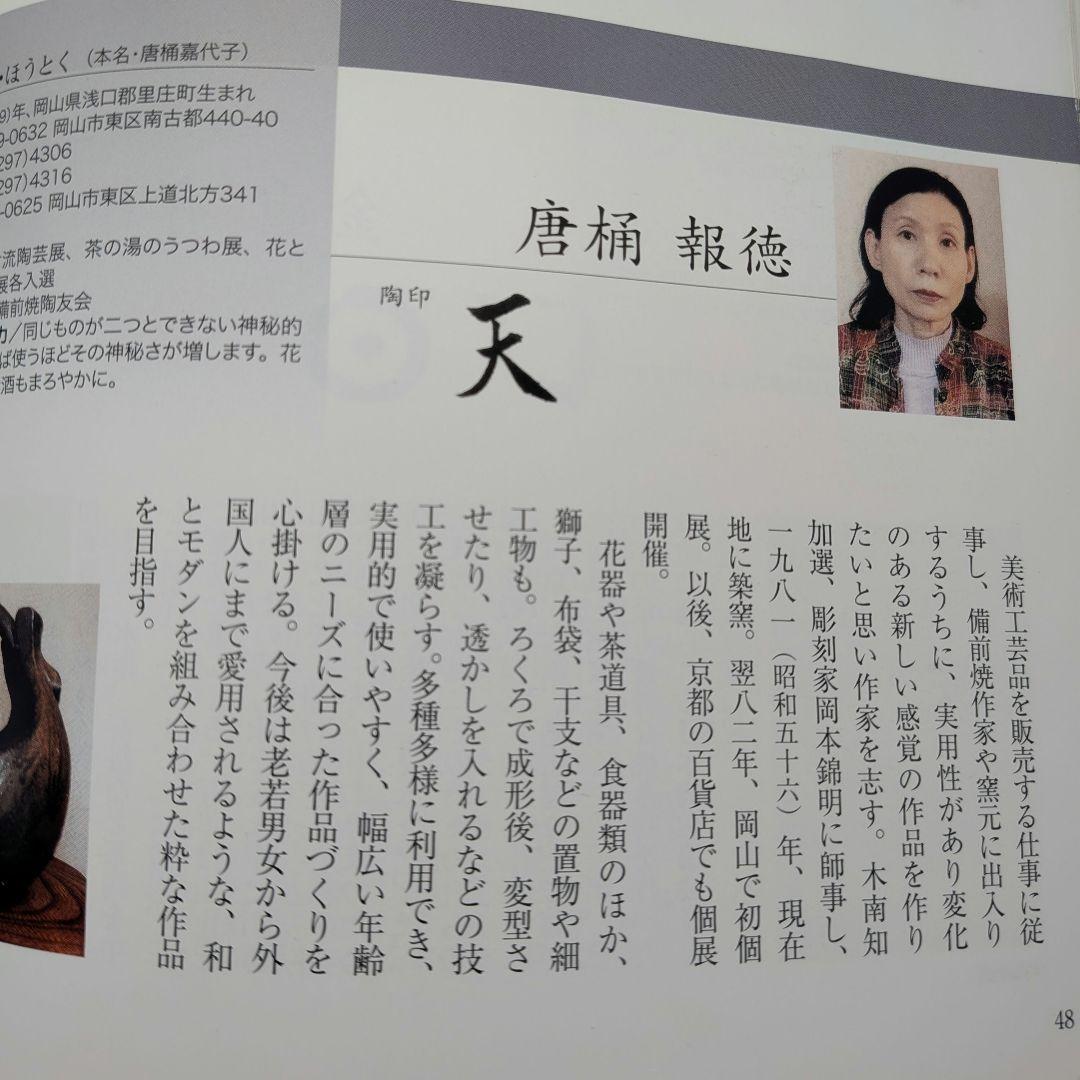 ・ほうとく（本名・唐桶嘉代子）
9)年、岡山県浅口郡里庄町生まれ
9-0632 岡山市東区南古都440-40
297)4306
297)4316
-0625 岡山市東区上道北方341
流陶芸展、茶の湯のうつわ展、花と
展各入選
備前焼陶友会
力／同じものが二つとできない神秘的
ば使うほどその神秘さが増します。花
酒もまろやかに。
唐桶 報徳
陶印
天
美術工芸品を販売する仕事に従
事し、備前焼作家や窯元に出入り
するうちに、実用性があり変化
のある新しい感覚の作品を作り
たいと思い作家を志す。木南知
加選、彫刻家岡本錦明に師事し、
一九八一（昭和五十六）年、現在
地に築窯。翌八二年、岡山で初個
展。以後、京都の百貨店でも個展
開催。
花器や茶道具、食器類のほか、
獅子、布袋、干支などの置物や細
工物も。ろくろで成形後、変型さ
せたり、透かしを入れるなどの技
工を凝らす。多種多様に利用でき、
実用的で使いやすく、幅広い年齢
層のニーズに合った作品づくりを
心掛ける。今後は老若男女から外
国人にまで愛用されるような、和
とモダンを組み合わせた粋な作品
を目指す。
48